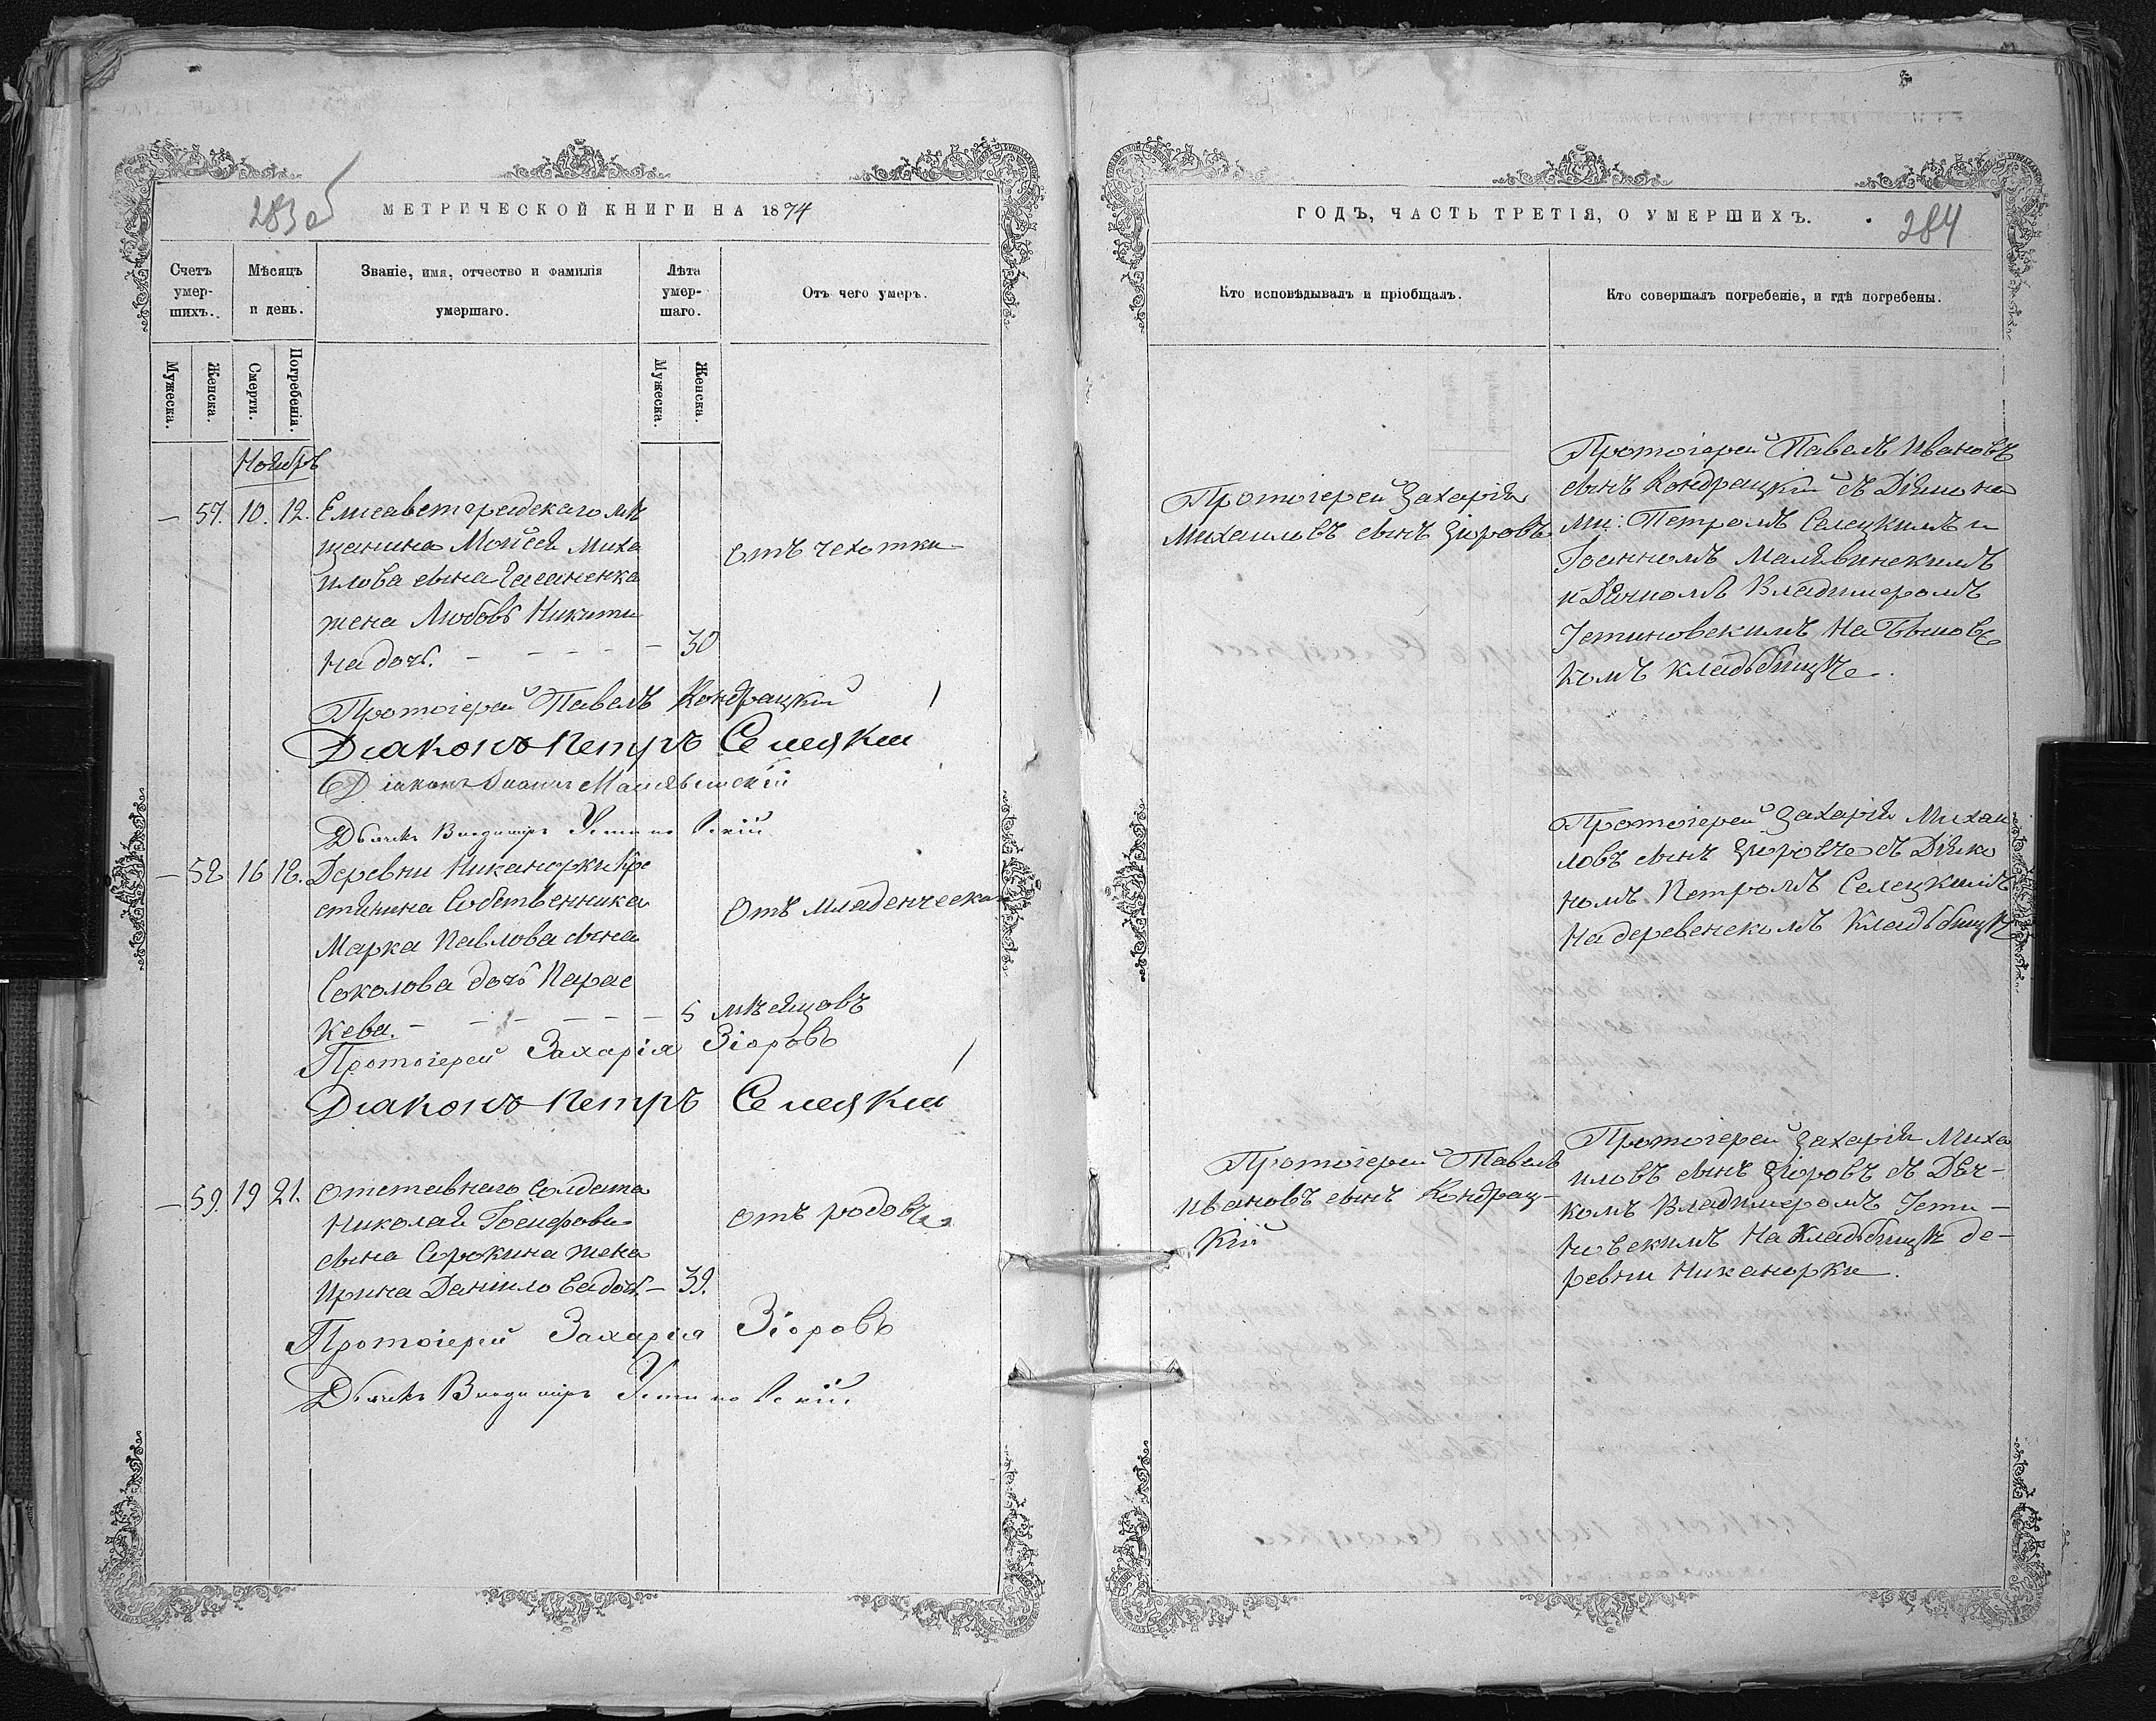 283 об
МЕТРИЧЕСКОЙ КНИГИ НА 1874
Счетъ умер-шихъ.
Мѣсяцъ и день.
Званіе, имя, отчество и фамилія умершаго.
Лѣта умер-шаго.
Отъ чего умеръ.
Мужеска.
Женска.
Смерти.
Погребенія.
Мужеска.
Женска.
Ноябрь
— 57. 10. 12. Елисаветградскаго мѣ
щанина Моѵсея Миха
илова сына
жена Любовь Никити
на дочь. — — — — — 30
отъ чахотки
Протоіерей Павелъ Кондрацкій
Діаконъ Петръ Селецкій
Діаконъ Іоаннъ Малявинскій
Дьячекъ Владиміръ Устиновскій
— 58 16 18. Деревни Никанорки кре
стянина Собственника
Марка Павлова сына
Соколова дочь Парас
кева. — — — — — — 5 мѣсяцовъ
отъ младенческа
Протоіерей Захарія Зіоровъ
Діаконъ Петръ Селецкій
— 59. 19 21. Отставнаго Солдата
Николая Іосифова
сына Сорокина жена
Ирина Даніилова дочь. — 39.
отъ родовъ
Протоіерей Захарія Зіоровъ
Дьячекъ Владиміръ Устиновскій
ГОДЪ, ЧАСТЬ ТРЕТІЯ, О УМЕРШИХЪ.
284
Кто исповѣдывалъ и пріобщалъ.
Кто совершалъ погребеніе, и гдѣ погребены.
Протоіерей Захарія
Михаиловъ сынъ Зіоровъ
Протоіерей Павелъ Ивановъ
сынъ Кондрацкій съ Діякона
ми: Петромъ Селецкимъ и
Іоанномъ Малявинскимъ
и Дячкомъ Владимеромъ
Устиновскимъ на
комъ кладбищѣ.
Протоіерей Захарія Михаи
ловъ сынъ Зіоровъ съ Діяко
номъ Петромъ Селецкимъ
на деревенскомъ кладбищѣ
Протоіерей Павелъ
Ивановъ сынъ Кондрац-
кій
Протоіерей Захарія Миха
иловъ сынъ Зіоровъ съ Дяч-
комъ Владимеромъ Усти-
новскимъ на кладбищѣ де-
ревни Никанорки.